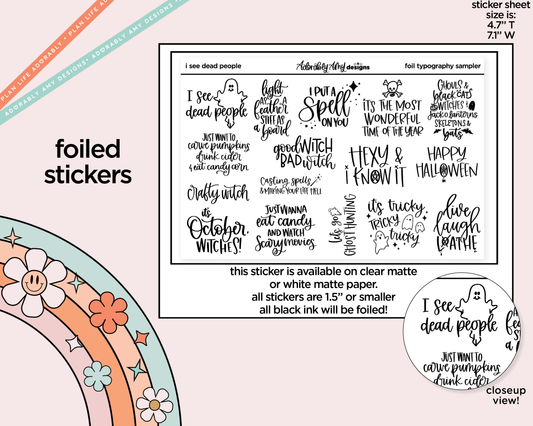 • PLAN LIFE ADORABLY • PLAN LIFE ADORABLY •
ADORABLY AMY DESIGNS • ADORABLY AMY DESIGNS •
sticker sheet
size is:
4.7" T
7.1" W
foiled
stickers
i see dead people
Adorably Amy designs
foil typography sampler
I See
dead people
light
AS A
feather
STIFF AS
a board
I PUT A
Spell
ON YOU
IT'S THE MOST
WONDERFUL
TIME OF THE YEAR
GHOULS &
black CATS
WITCHES &
Jack o lanterns
SKELETONS &
bats
JUST WANT TO
carve pumpkins
drunk cider
& eat candy corn
good WITCH
BAD witch
HEXY &
I KNOW IT
HAPPY
HALLOWEEN
Crafty witch
Casting spells
& MAKING YOUR LIFE HELL
it's
October,
WITCHES!
JUST WANNA
eat candy
AND WATCH
Scary movies
let's go
GHOST HUNTING
it's tricky
TRICKY
tricky
live
laugh
LOATHE
this sticker is available on clear matte
or white matte paper.
all stickers are 1.5" or smaller
all black ink will be foiled!
I See
dead people
JUST WANT TO
carve pumpkins
drunk cider
closeup
view!